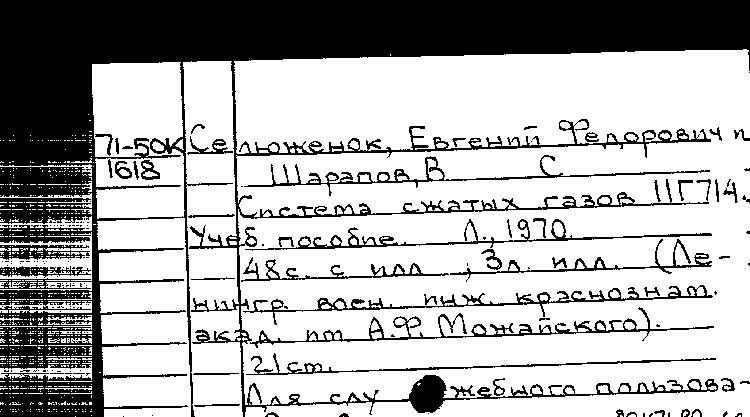 71-50К Селюженок, Евгений Федорович и
1618 Шарапов, В С
Система сжатых газов 11Г714.
Учеб. пособие. Л., 1970
48с. с илл , 3л. илл. (Ле-
нингр. воен. инж. краснознам.
акад. им А.Ф. Можайского).
21cm.
Для слу жебного пользова-